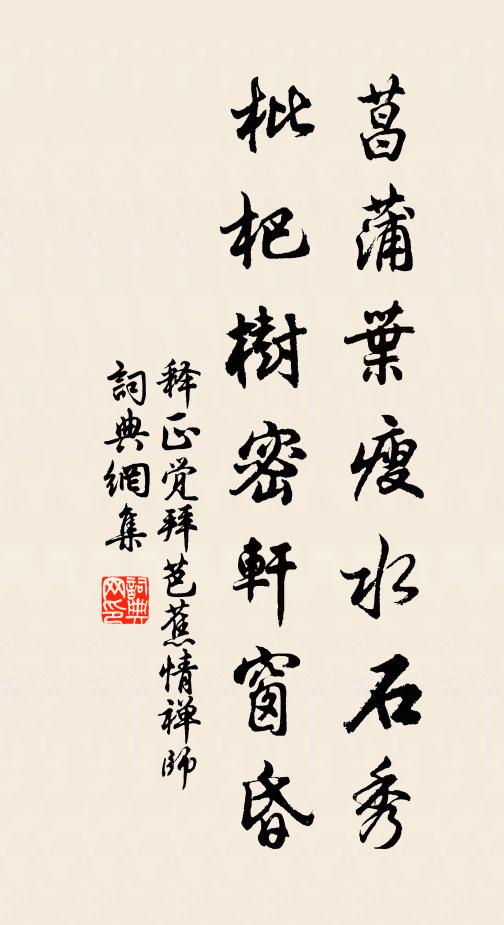 菖蒲葉瘦水石秀
枇杷樹密軒窗昏
释正觉拜芭蕉情禅師
詞典網集
詞典網印